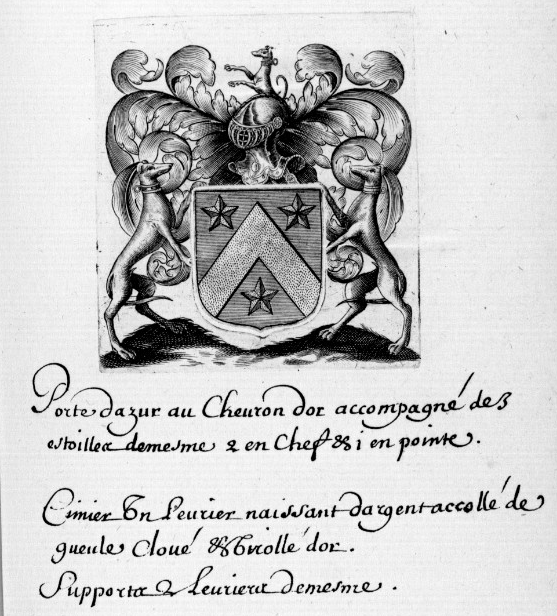 Porte dazur au Cheuron dor accompagné de 3
estoilles demesme 2 en Chef & i en pointe.
Cimier Vn Leurier naissant dargent accollé de
gueule Cloué & Virollé dor.
Supports 2 Leuriers demesme.